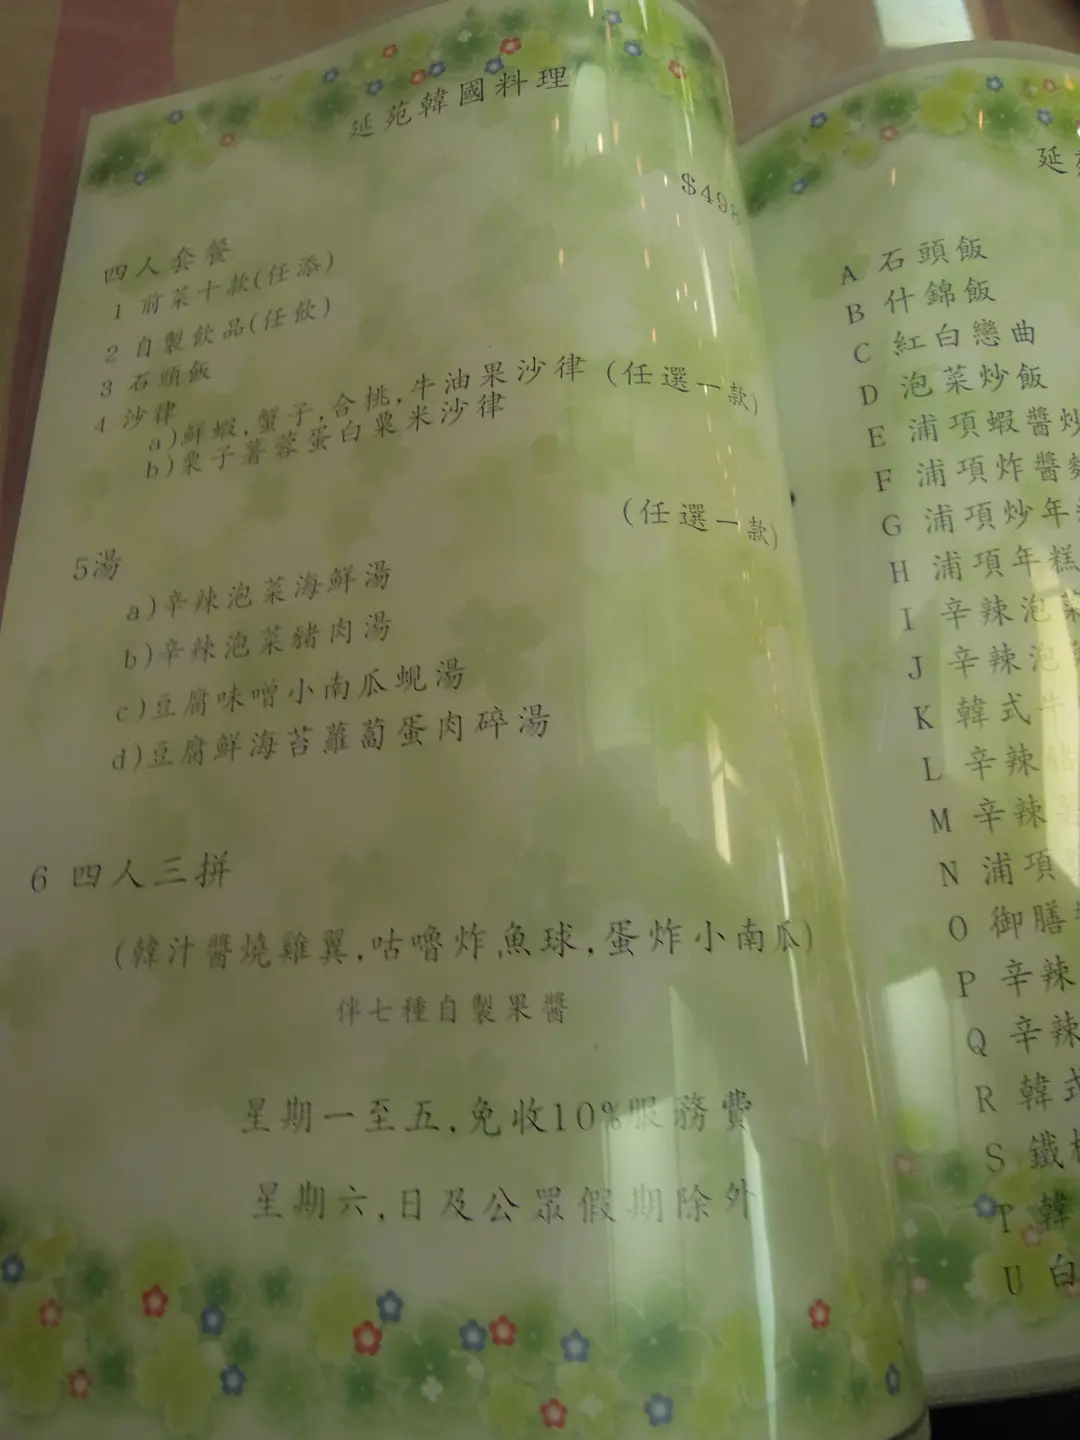 延苑韓國料理
$498
四人套餐
1 前菜十款(任添)
2 自製飲品(任飲)
3 石頭飯
4 沙律
a)鮮蝦,蟹子,合桃,牛油果沙律 (任選一款)
b)栗子薯蓉蛋白粟米沙律
(任選一款)
5湯
a)辛辣泡菜海鮮湯
b)辛辣泡菜豬肉湯
c)豆腐味噌小南瓜蜆湯
d)豆腐鮮海苔蘿蔔蛋肉碎湯
6 四人三拼
(韓汁醬燒雞翼,咕嚕炸魚球,蛋炸小南瓜)
伴七種自製果醬
星期一至五,免收10%服務費
星期六,日及公眾假期除外
延
A 石頭飯
B 什錦飯
C 紅白戀曲
D 泡菜炒飯
E 浦項蝦醬炒
F 浦項炸醬麵
G 浦項炒年
H 浦項年糕
I 辛辣泡菜
J 辛辣泡
K 韓式牛
L 辛辣
M 辛辣
N 浦項
O 御膳
P 辛辣
Q 辛辣
R 韓式
S 鐵
T 韓
U 白